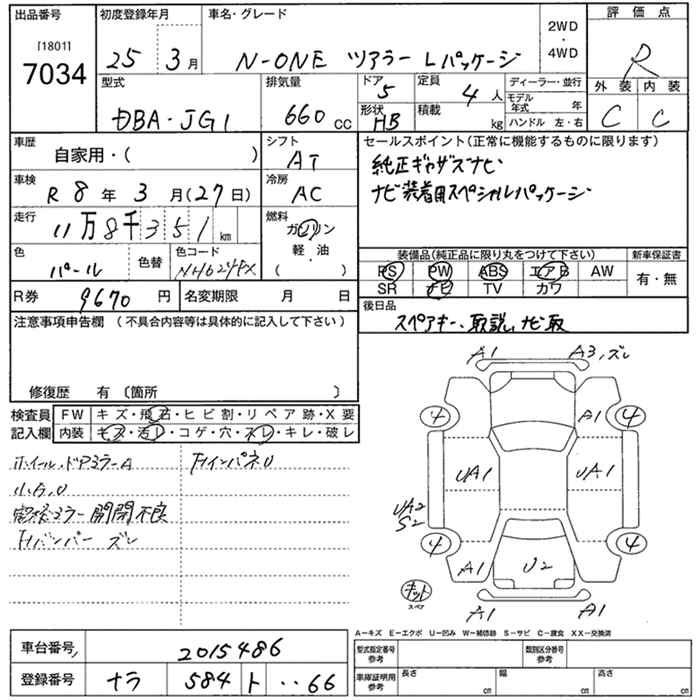 出品番号 初度登録年月 車名・グレード 評価点
[1801]
7034
25 3月 N-ONE ツアラー Lパッケージ 2WD・4WD R
型式 排気量 ドア 5 定員 4人 ディーラー・並行 外装 内装
DBA-JG1 660cc 形状 HB 積載 kg モデル年式 年 C C
ハンドル 左・右
車歴 自家用・( ) シフト AT セールスポイント(正常に機能するものに限ります)
純正ギャザズナビ
車検 R8年3月(27日) 冷房 AC ナビ装着用スペシャルパッケージ
走行 11万8千351km 燃料 ガソリン
軽・油
( )
色 パール 色替 色コード 装備品(純正品に限り丸をつけて下さい) 新車保証書
PS PW ABS エアB AW 有・無
SR ナビ TV カワ
R券 9670円 名変期限 月 日 後日品
注意事項申告欄 (不具合内容等は具体的に記入して下さい) スペアキー、取説、ナビ取
修復歴 有 〔箇所 〕
検査員記入欄 FW キズ・飛石・ヒビ割・リペア跡・X要
内装 キズ・汚レ・コゲ・穴・スレ・キレ・破レ
ホイール、ドアミラーA FインパネU
小A,U
電格ミラー開閉不良
Fバンパー ズレ
A1 A3,ズレ
4 A1 4
UA1 UA1
UA2
S2
4 4
A1 U2 A1
キット
スペア
A1 A1
A−キズ E−エクボ U−凹み W−補修跡 S−サビ C−腐食 XX−交換済
車台番号 2015486 型式指定番号 参考 類別区分番号 参考
登録番号 ナラ 584 ト ・・66 車庫証明用 参考 長さ cm 幅 cm 高さ cm